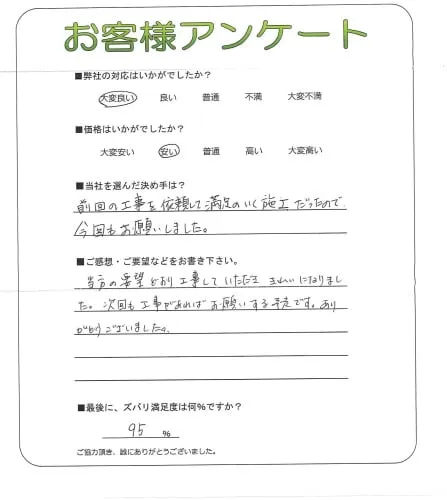 お客様アンケート
■弊社の対応はいかがでしたか?
大変良い 良い 普通 不満 大変不満
■価格はいかがでしたか?
大変安い 安い 普通 高い 大変高い
■当社を選んだ決め手は?
前回の工事を依頼して満足のいく施工だったので、
今回もお願いしました。
■ご感想・ご要望などをお書き下さい。
当方の要望どおり工事していただき きれいになりまし
た。次回も工事があればお願いする予定です。あり
がとうございました。
■最後に、ズバリ満足度は何%ですか?
95 %
ご協力頂き、誠にありがとうございました。